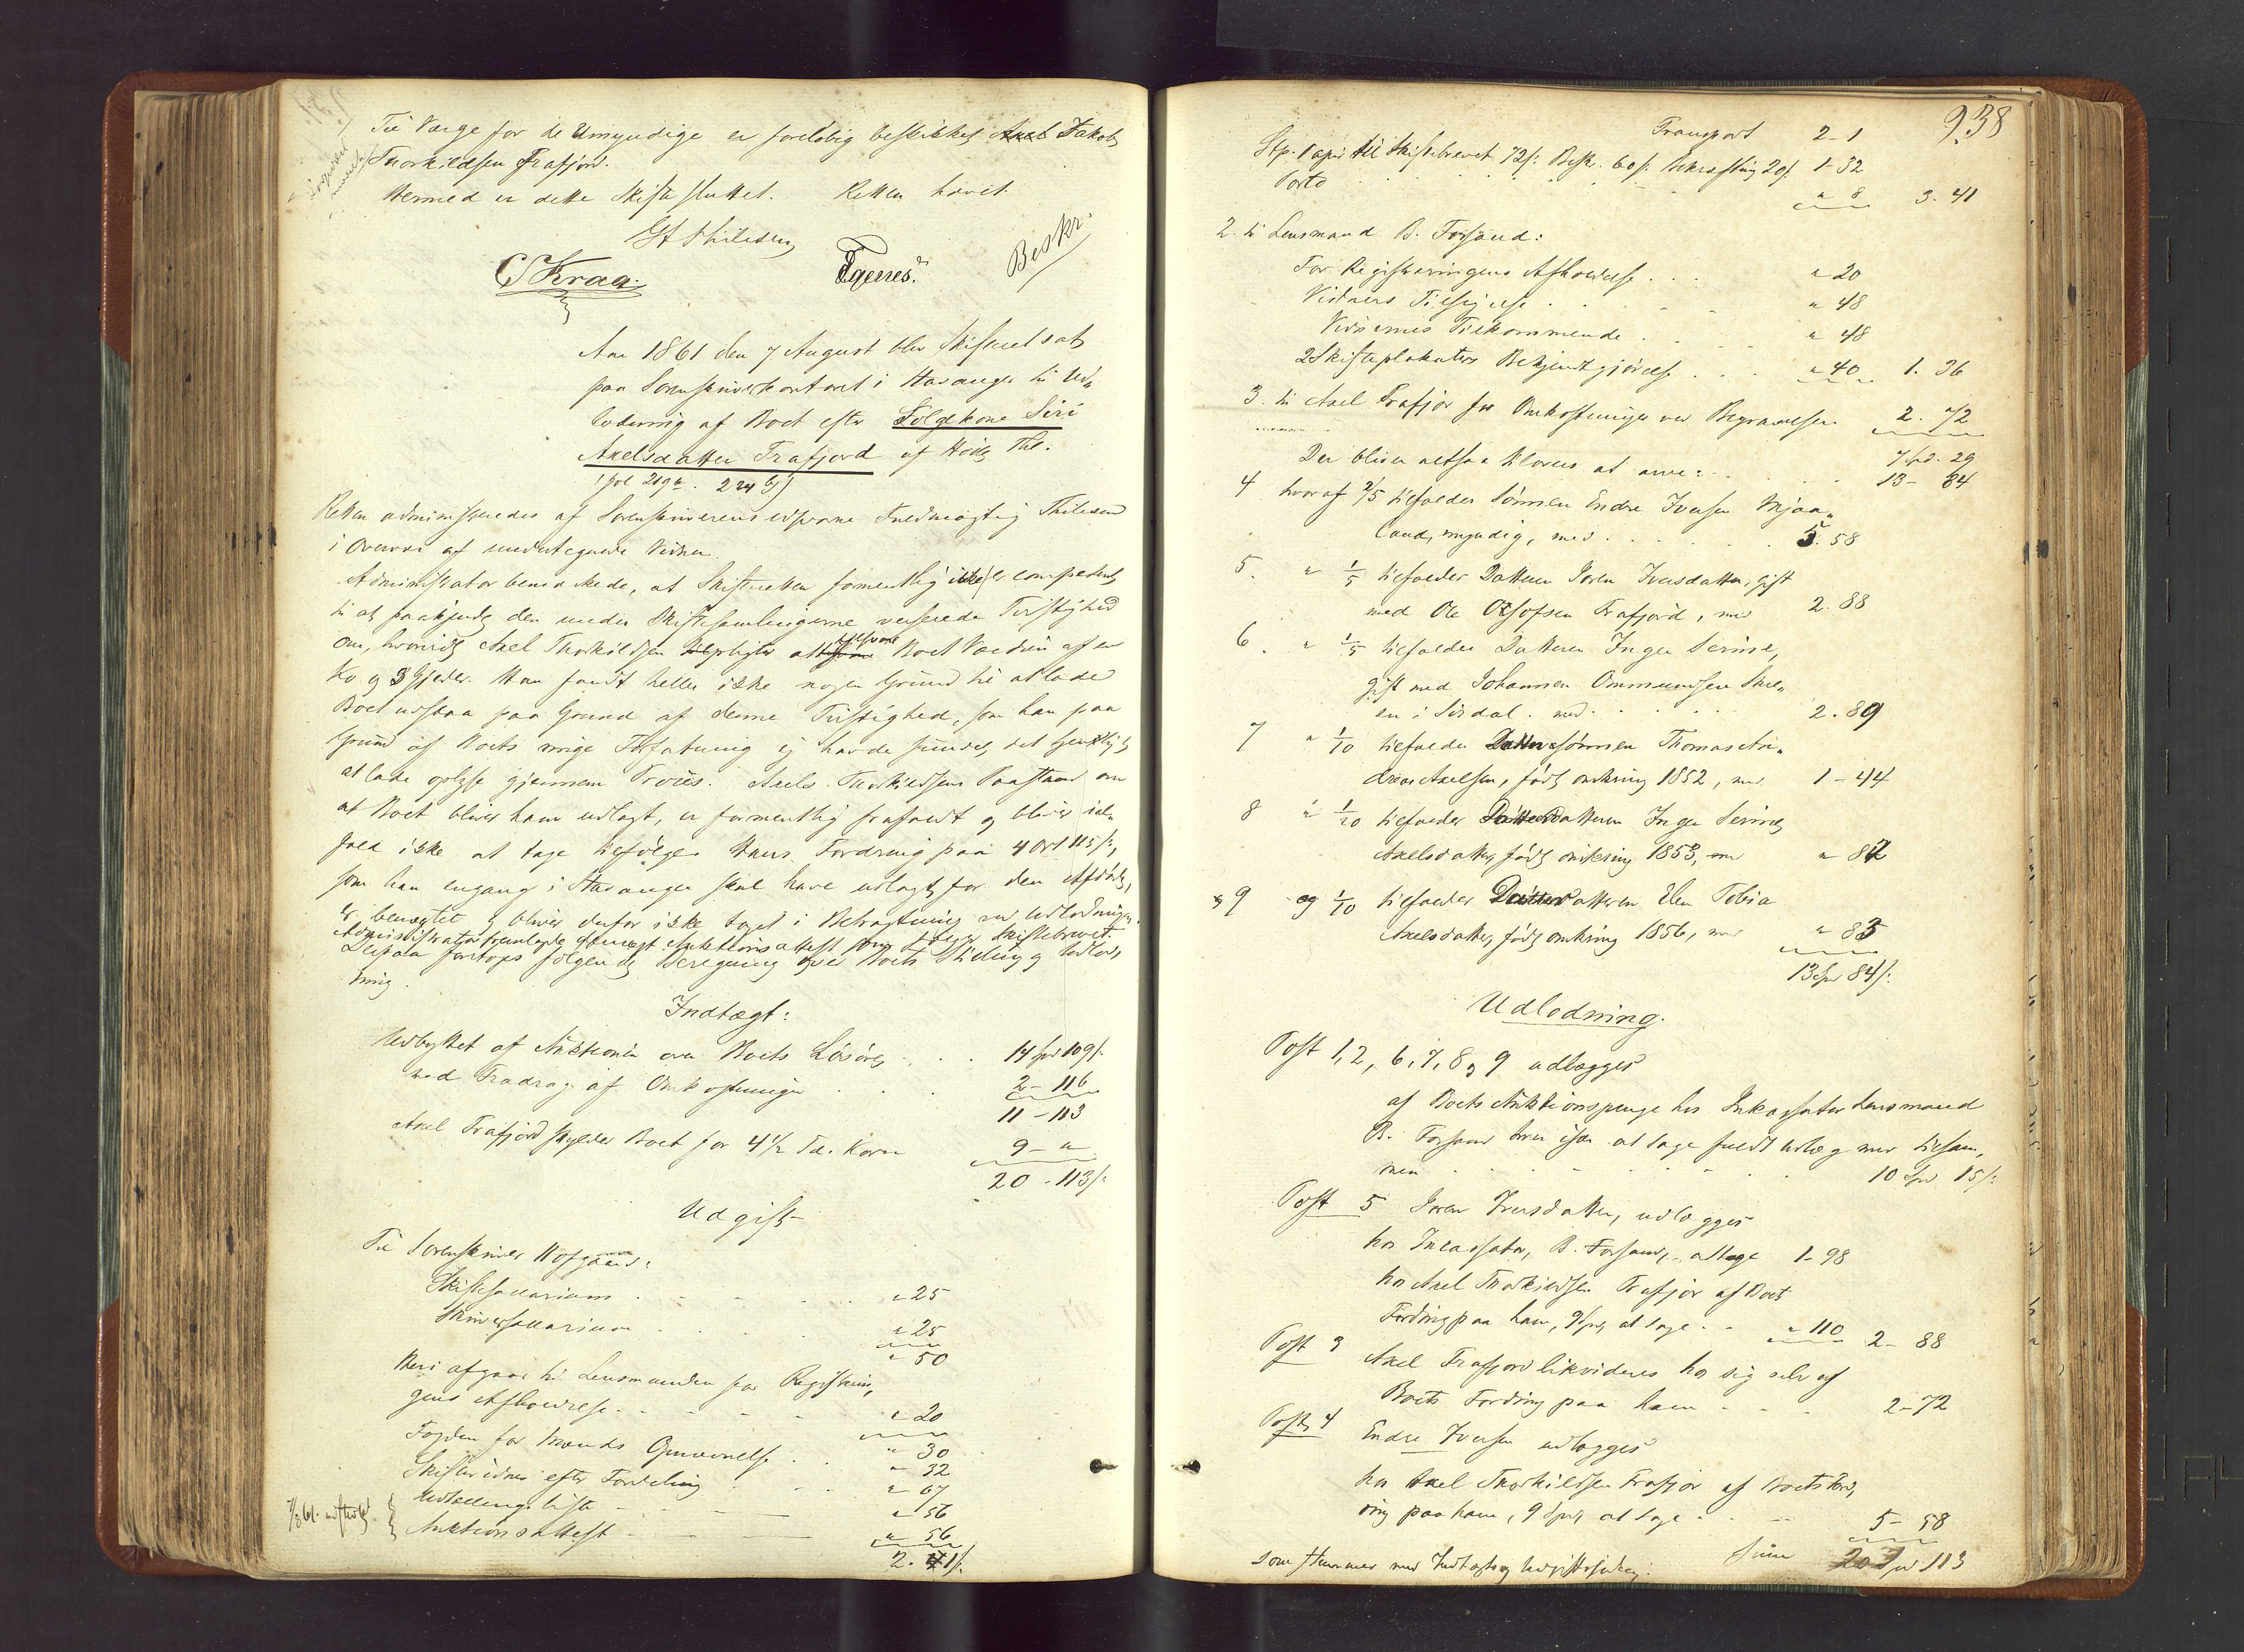 Til Værge for de Umyndige er foreløbig beskikket Jakob
Thorkildsen Frafjord.
Hermed er dette Skifte sluttet. Retten hævet.
Thilesen
Beskr.
Aar 1861 den 7 August blev Skifteret sat
paa Sorenskriverkontoret i Stavanger til Ud„
lodning af Boet efter Folgekone Siri
Axelsdatter Frafjord af Høle Thl.
(fol 219a. 224 b)
Retten administreredes af Sorenskriverens edsvorne Fuldmægtig Thilesen
i Overvær af undertegnede Vidner.
Administrator bemærkede, at Skifteretten formentlig ikke er competent
til at paakjende den under Skiftesamlingerne verserede Tvistighed
om, hvorvidt Axel Thorkildsen er pligtig at tilsvare Boet Værdien af en
Ko og 3 Gjeder. Han fandt heller ikke nogen Grund til at lade
Boet udstaa paa Grund af denne Tvistighed, som han paa
Grund af Boets ringe Forfatning ej havde fundet det tjenligt
at lade oplyse gjennem Proces. Axel Thorkildsens Paastand om
at Boet bliver ham udlagt, er formentlig frafaldt og bliver ial„
fald ikke at tage tilfølge. Hans Fordring paa 4 Ort 115/:,
som han engang i Stavanger skal have udlagt for den Afdøde,
er benægtet og bliver derfor ikke taget i Betragtning ved Udlodningen.
Administrator fremlagde dernæst Auktionsattest som tages Skiftebrevet.
Derpaa foretoges følgende Beregning over Boets Deling og Udlod„
ning.
Indtægt:
Udbyttet af Auktionen over Boets Løsøre . . . 14 Spd 109/:
ved Fradrag af Omkostninger . . . 2 – 116
11 – 113
Axel Frafjord skylder Boet for 4½ Td. Korn 9 – "
20 – 113/:
Udgift
Til Sorenskriver Hofgaard:
Skiftesallarium . . . " 25
Skriversallarium . . . " 25
" 50
Heri afgaar til Lensmanden for Registrerin„
gens Afholdelse . . . " 20
" 30
Fogden for Mænds Opnævnelse . . " 32
Skiftevidner efter Fordeling . . " 67
Udlodlings liste . . . " 56
Auktionsattest . . . " 56
2. 1/:
938
Transport 2 – 1
Stp. Papir til Skiftebrevet 72/: Beskr. 60/: Bekræftning 20/: 1 – 32
Porto . . . " 8 3. 41
2. til Lensmand B. Forsand:
For Registreringens Afholdelse . . . " 20
Vidners Tilsigelse . . . " 48
Vidnernes Tilkommende . . . " 48
2 Skifteplakaters Bekjendtgjørelse . . . " 40 1. 36
3. til Axel Frafjor for Omkostninger ved Begravelsen 2. 72
7 Spd. 29
Der bliver altsaa tilovers at arve: . . . 13 – 84
4 hvoraf 2/5 tilfalder Sønnen Endre Iversen Mjaa„
land, myndig, med . . . 5. 58
5. " 1/5 tilfalder Datteren Soren Iversdatter, gift
med Ole Frafjord, med 2. 88
6. " 1/5 tilfalder Datteren Inger Serine,
gift med Johannes Ommundsen
en i Sirdal. med . . . 2. 89
7 " 1/10 tilfalder Dattersønnen Thomas An„
dreas Axelsen, født omkring 1852, med 1 – 44
8 " 1/20 tilfalder Datterdatteren Inger Serine
Axelsdatter, født omkring 1853, med " 82
9 og 1/10 tilfalder Datterdatteren Elen Tobia
Axelsdatter, født omkring 1856, med " 83
13 Spd 84/:
Udlodning.
Post 1, 2, 6, 7, 8 og 9 udlægges
af Boets Auktionspenge hos Inkassator Lensmand
B. Forsand hver især at tage fuldt Udlæg med tilsam„
men . . . 10 Spd 15/:
Post 5 Soren Iversdatter, udlægges
hos Incassator, B. Forsand, at tage 1 – 98
hos Axel Thorkildsen Frafjor af Boets
Fordring paa ham, 9 Spd, at tage . . " 110 2 – 88
Post 3 Axel Frafjord likvideres hos sig selv af
Boets Fordring paa ham . . . 2 – 72
Post 4 Endre Iversen udlægges
hos Axel Thorkildsen Frafjor af Boets Ford„
ring paa ham, 9 Spd, at tage . . . 5 – 58
Sum 20 Spd 113
som stemmer med Indtægts og Udgiftssiden.